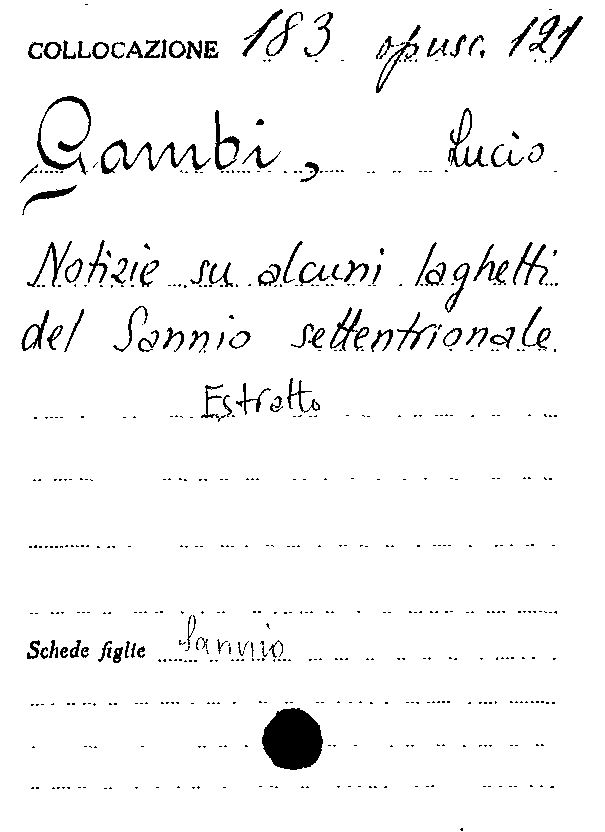 COLLOCAZIONE 183 opusc. 121
Gambi, Lucio
Notizie su alcuni laghetti
del Sannio settentrionale
Estratto
Schede figlie Sannio